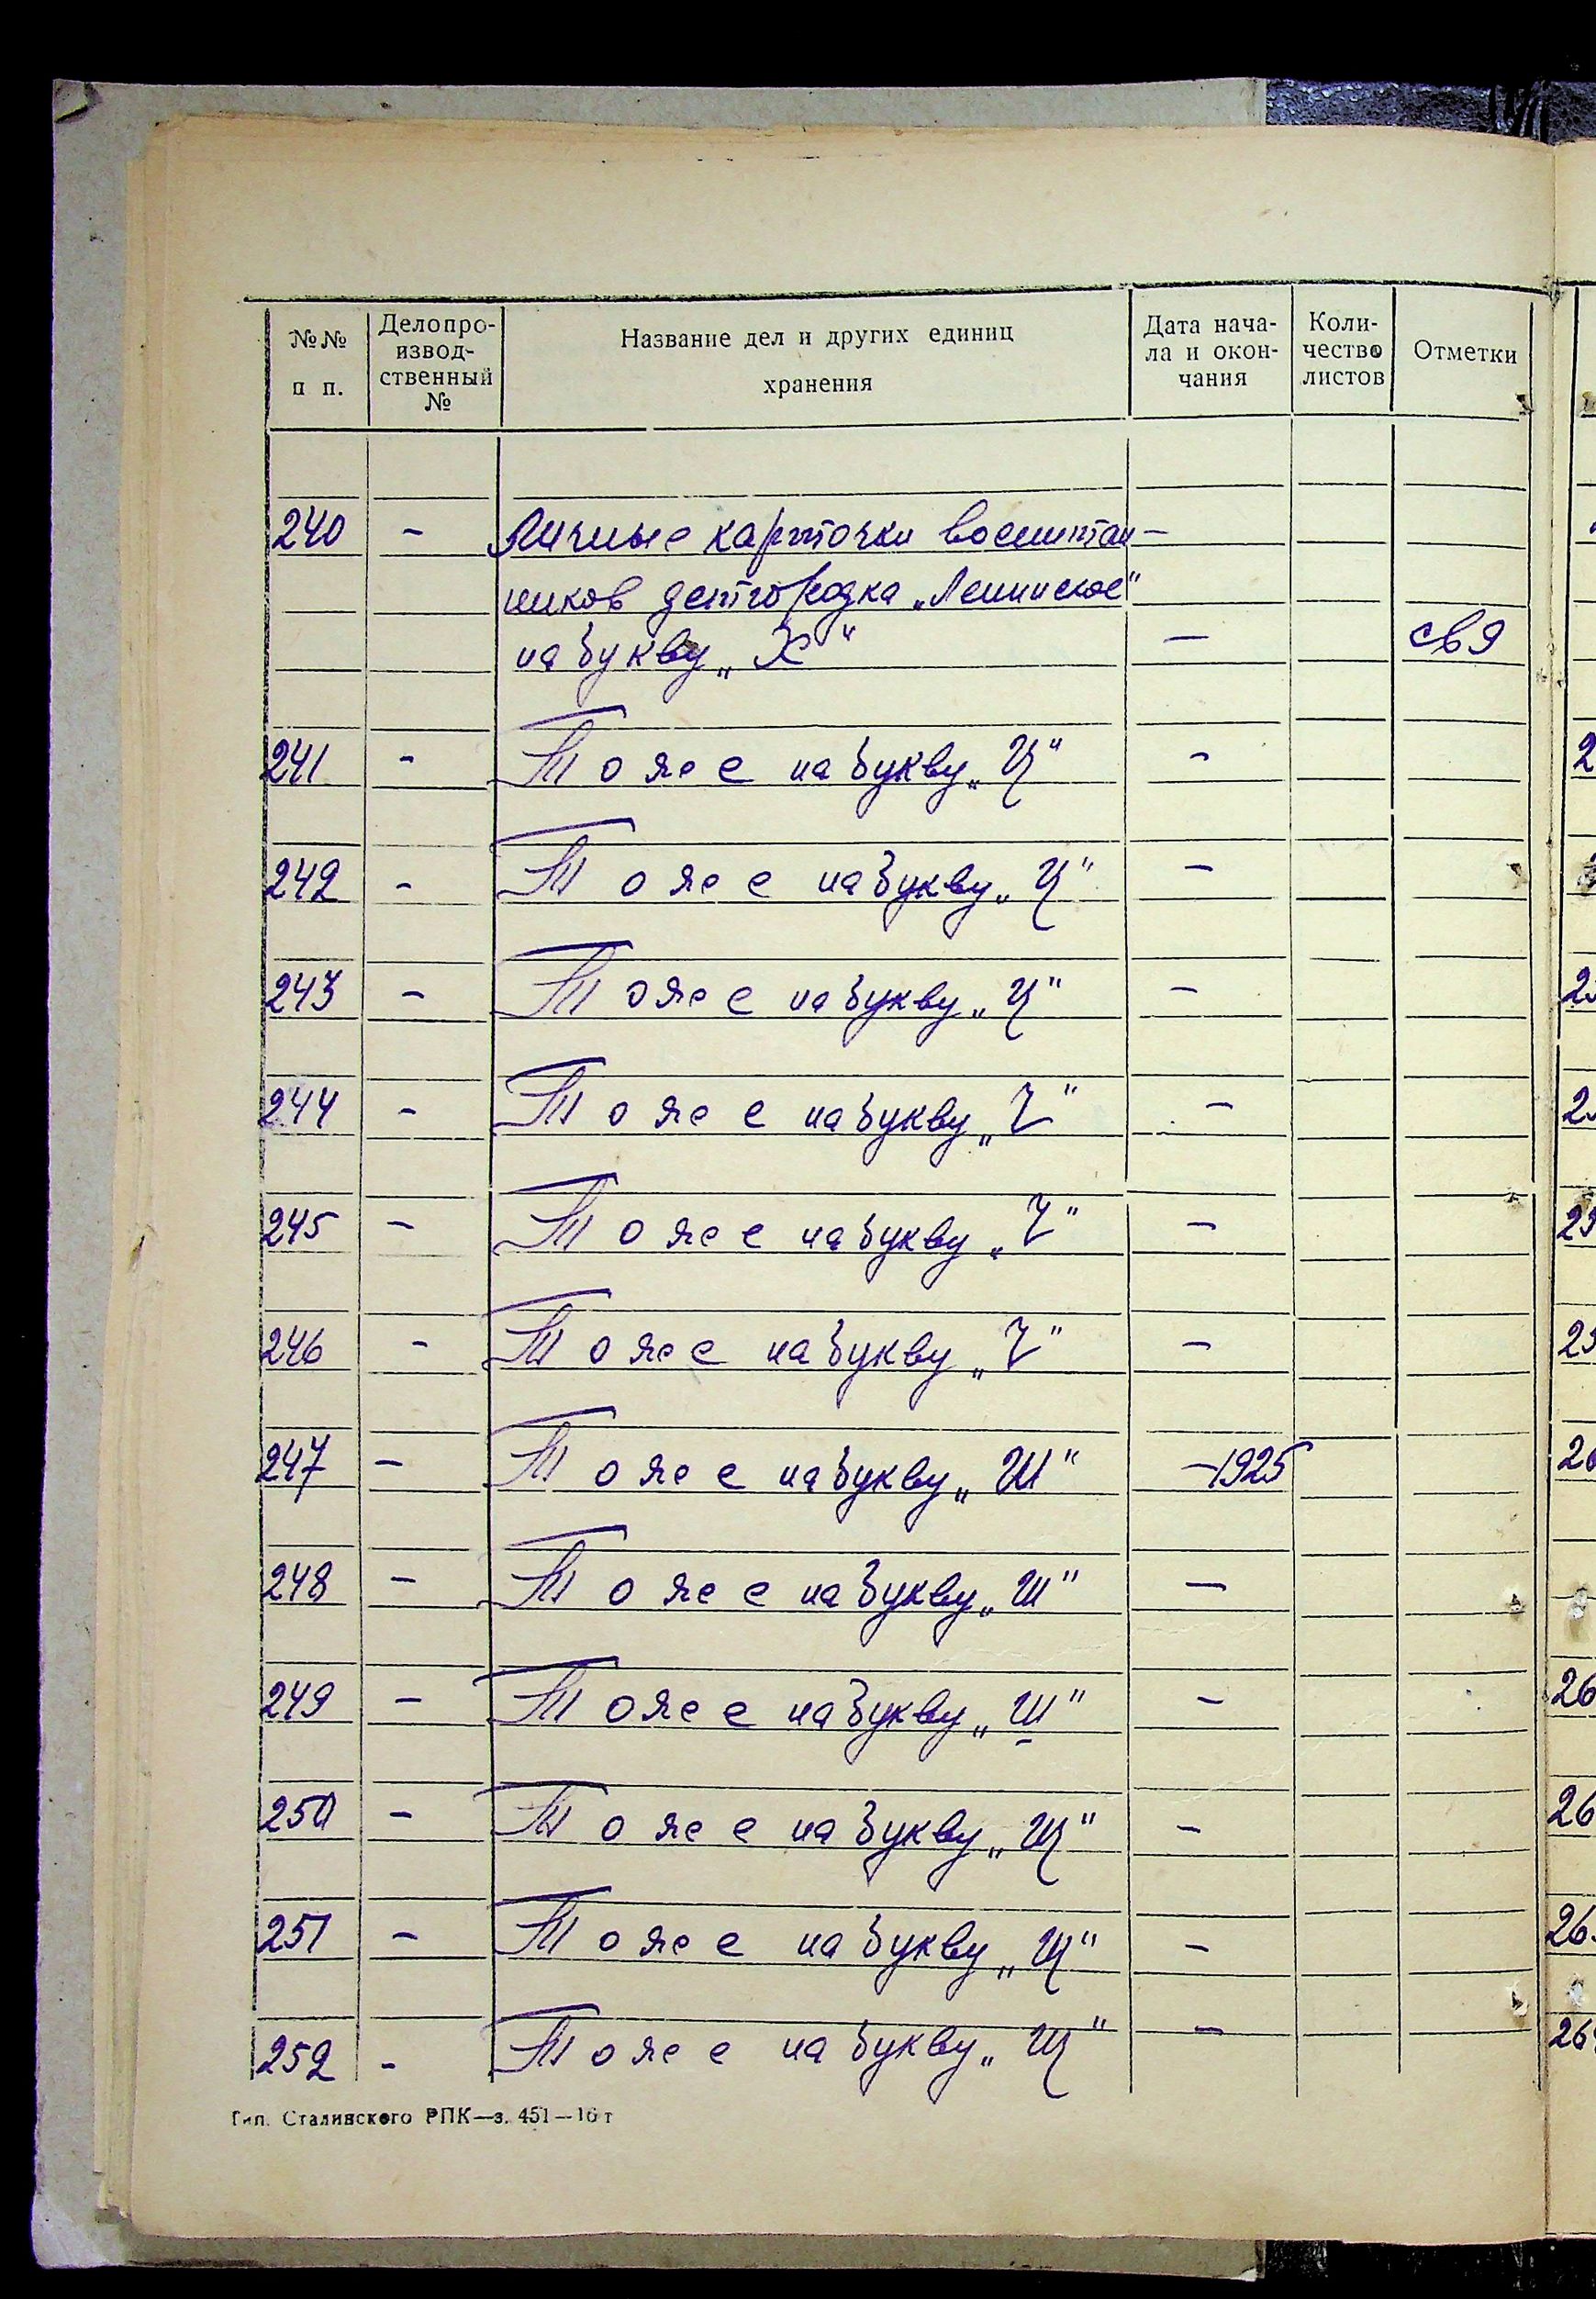 №№ п п. Делопро-извод-ственный № Название дел и других единиц хранения Дата нача-ла и окон-чания Коли-чество листов Отметки
240 - Личные карточки воспитан -
ников детгородка „Ленинское"
на букву „Х" -
241 - То же е на букву „Ц" -
242 - То же е на букву „Ц" -
243 - То же е на букву „Ц" -
244 - То же е на букву „Ч" -
245 - То же е на букву „Ч" -
246 - То же е на букву „Ч" -
247 - То же е на букву „Ш" -1925
248 - То же е на букву „Ш" -
249 - То же е на букву „Ш" -
250 - То же е на букву „Щ" -
251 - То же е на букву „Щ" -
252 - То же е на букву „Щ" -
Тип. Сталинского РПК—з. 451—16 т